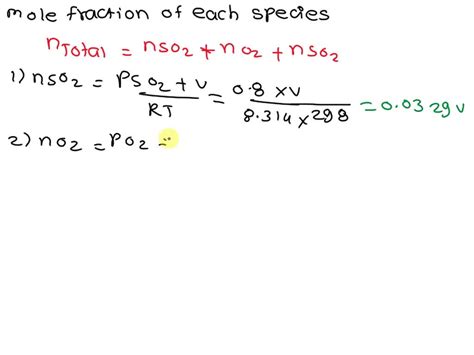 mole fraction of each species
nTotal = nSO2 + nO2 + nSO2
1) nSO2 = PSO2 + V / RT = 0.8 × V / 8.314 × 298 = 0.0329 V
2) nO2 = PO2 =